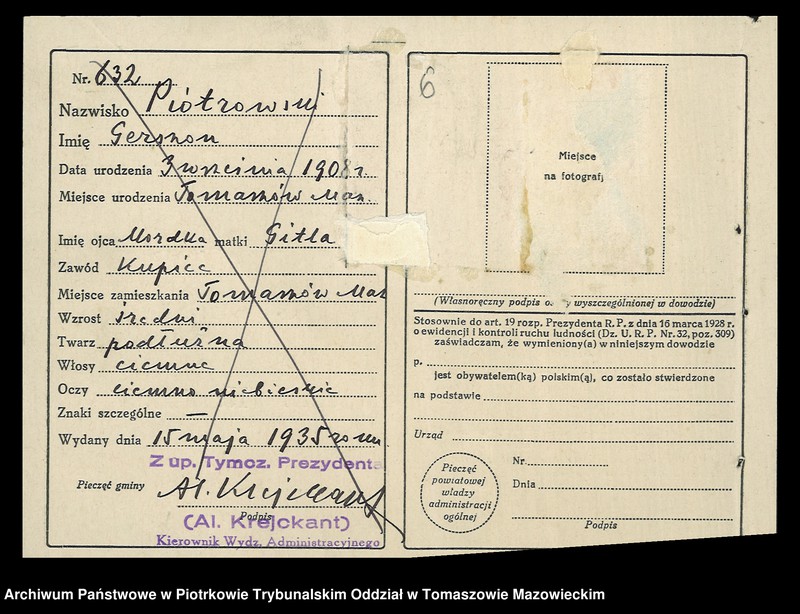 Nr. 632
Nazwisko Piotrowski
Imię Gerszon
Data urodzenia 3 września 1908 r
Miejsce urodzenia Tomaszów Maz.
Imię ojca Mordka matki Gitla
Zawód Kupiec
Miejsce zamieszkania Tomaszów Maz
Wzrost średni
Twarz podłużna
Włosy ciemne
Oczy ciemno niebieskie
Znaki szczególne —
Wydany dnia 15 maja 1935 roku
Z up. Tymcz. Prezydenta
Pieczęć gminy Al. Krejckant
Podpis
(Al. Krejckant)
Kierownik Wydz. Administracyjnego
6
Miejsce
na fotografj
(Własnoręczny podpis o y wyszczególnionej w dowodzie)
Stosownie do art. 19 rozp. Prezydenta R. P. z dnia 16 marca 1928 r.
o ewidencji i kontroli ruchu ludności (Dz. U. R. P. Nr. 32, poz. 309)
zaświadczam, że wymieniony(a) w niniejszym dowodzie
p.
jest obywatelem(ką) polskim(ą), co zostało stwierdzone
na podstawie
Urząd
Pieczęć
powiatowej
władzy
administracji
ogólnej
Nr.
Dnia
Podpis
Archiwum Państwowe w Piotrkowie Trybunalskim Oddział w Tomaszowie Mazowieckim